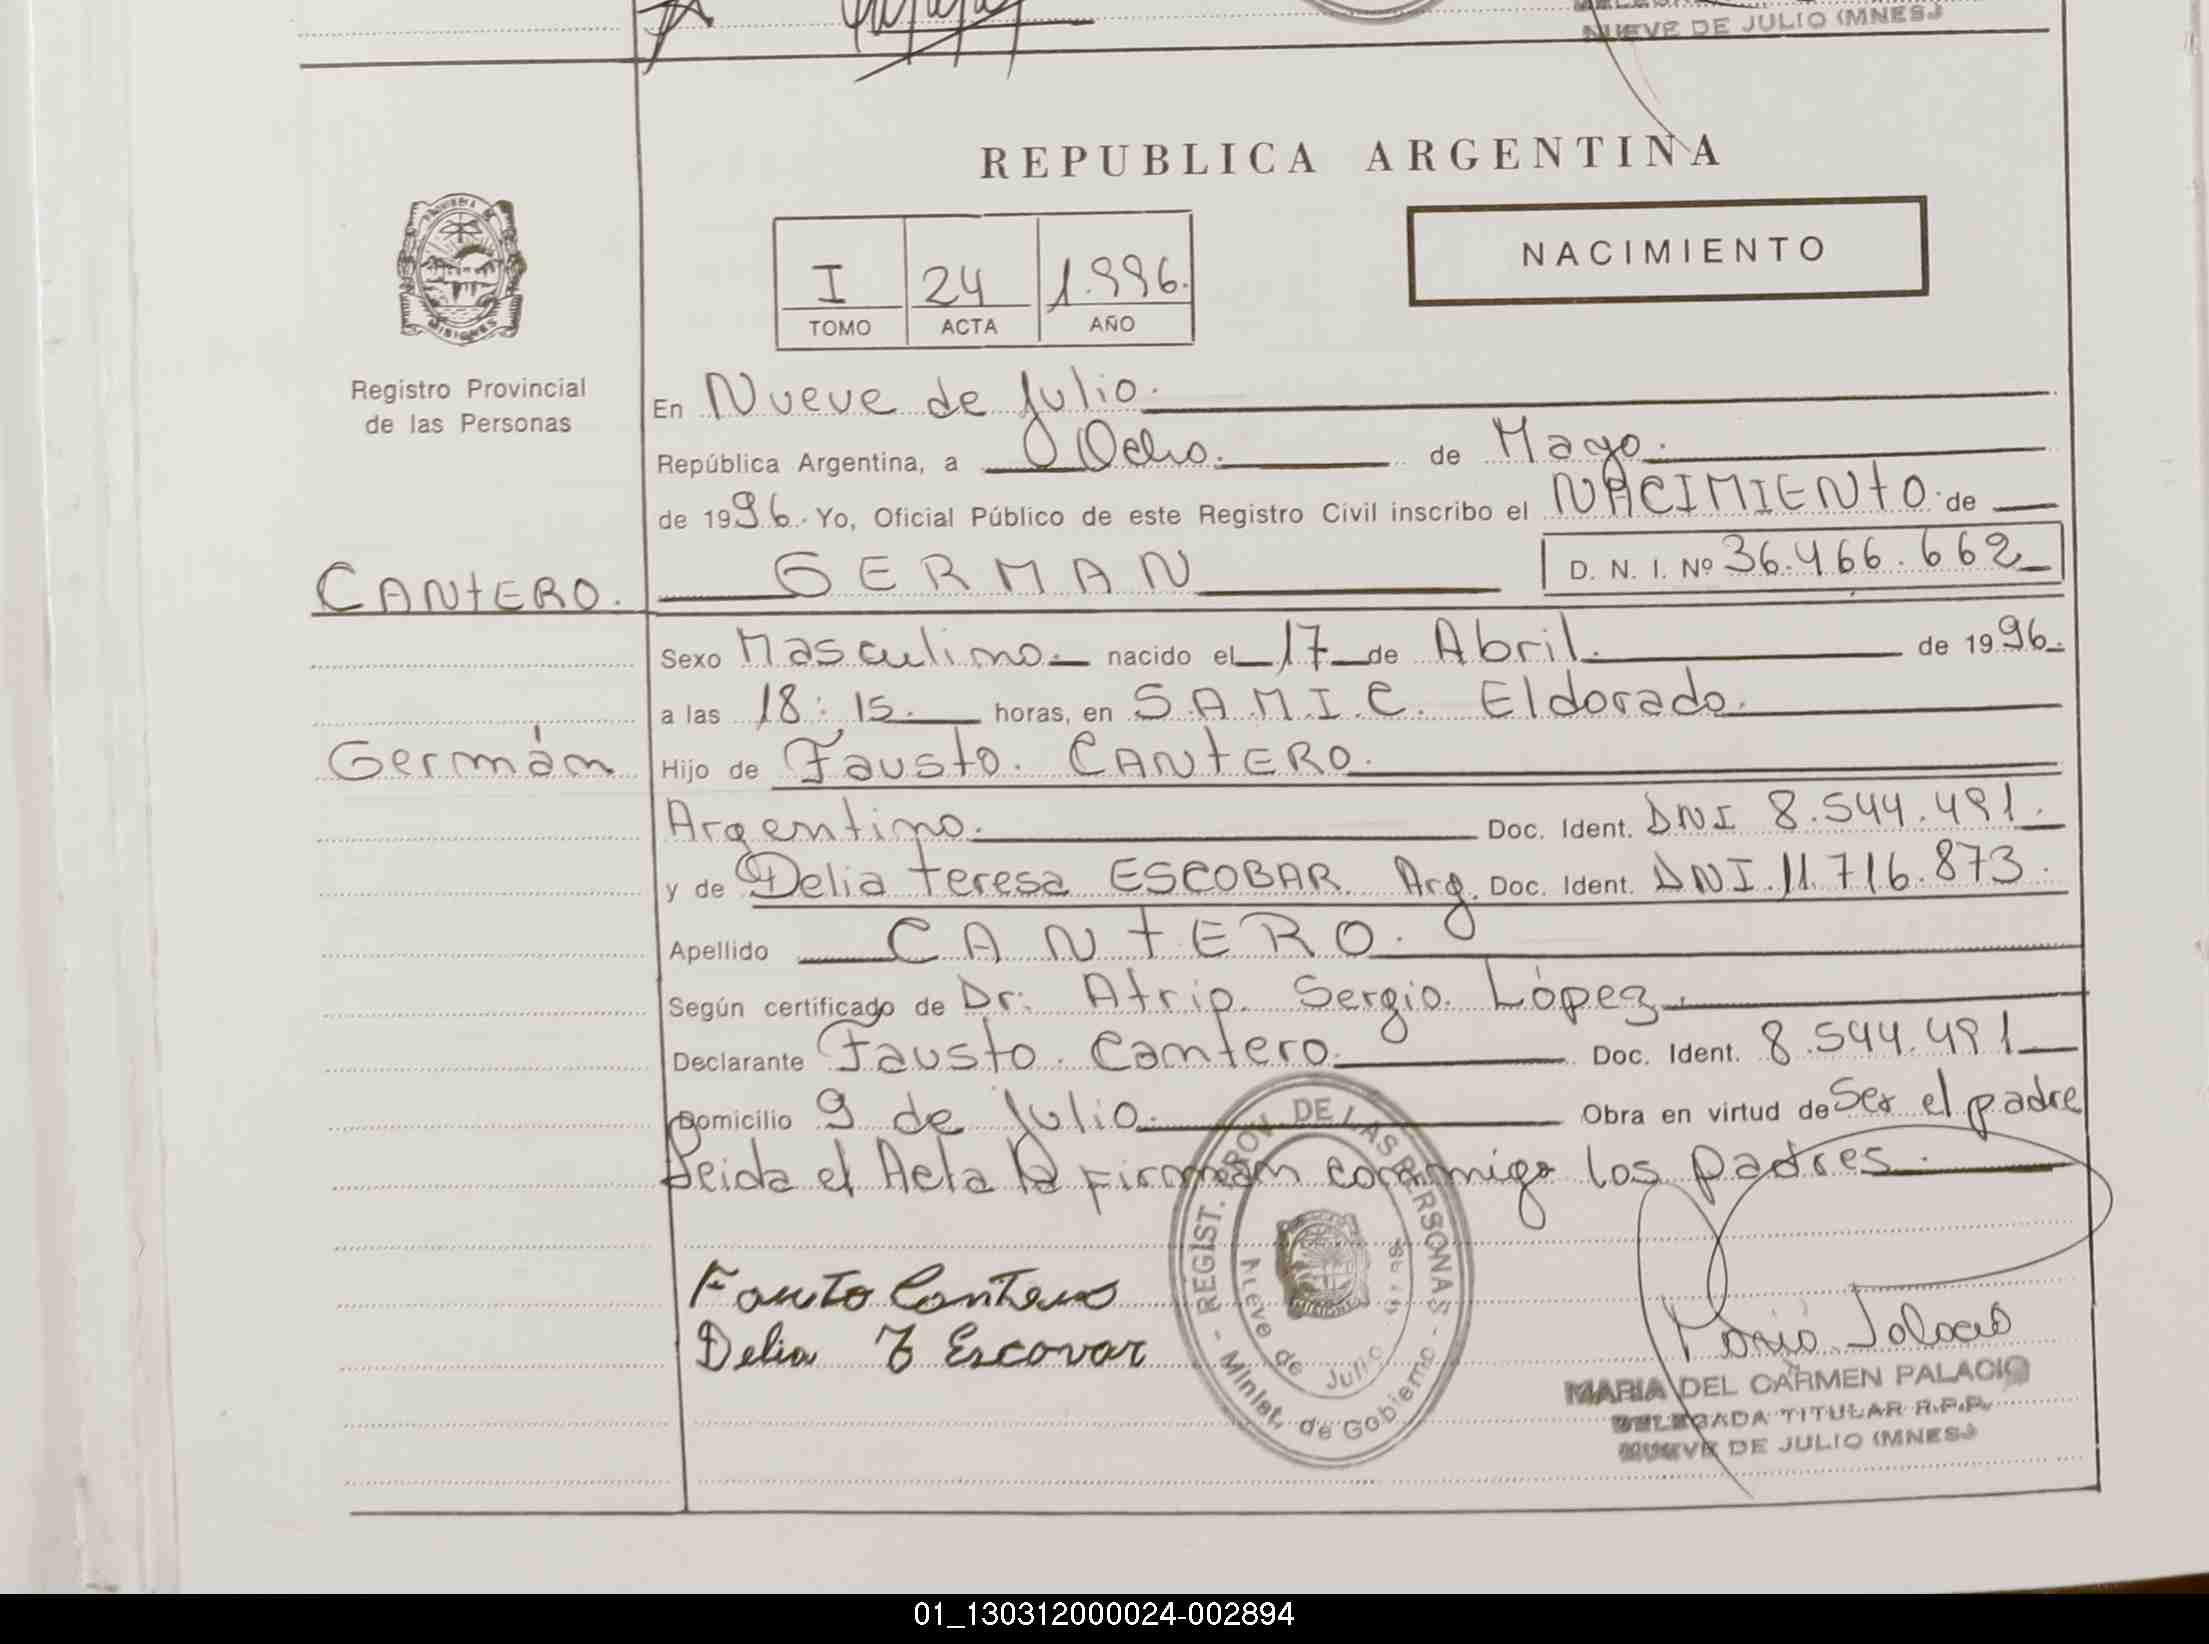 NUEVE DE JULIO (MNES.)
REPUBLICA ARGENTINA
NACIMIENTO
I 24 1.996.
TOMO ACTA AÑO
PROVINCIA DE
MISIONES
Registro Provincial
de las Personas
En Nueve de Julio.
República Argentina, a Ocho. de Mayo.
de 1996. Yo, Oficial Público de este Registro Civil inscribo el NACIMIENTO. de
CANTERO. GERMAN D. N. I. Nº 36.466.662
Sexo Masculino. nacido el 17 de Abril. de 1996.
a las 18:15. horas, en S.A.M.I.C. Eldorado.
Germán Hijo de Fausto. CANTERO.
Argentino. Doc. Ident. DNI 8.544.491.
y de Delia Teresa ESCOBAR. Arg. Doc. Ident. DNI.11.716.873.
Apellido CANTERO.
Según certificado de Dr. Atrip. Sergio. López.
Declarante Fausto. Cantero. Doc. Ident. 8.544.491
Domicilio 9 de Julio. Obra en virtud de Ser el padre
Leida el Acta la firman conmigo los padres.
Fausto Cantero
Delia T Escovar
REGIST. PROV. DE LAS PERSONAS - Minist. de Gobierno -
Nueve de Julio
MARIA DEL CARMEN PALACIO
DELEGADA TITULAR R.P.P.
NUEVE DE JULIO (MNES.)
01_130312000024-002894